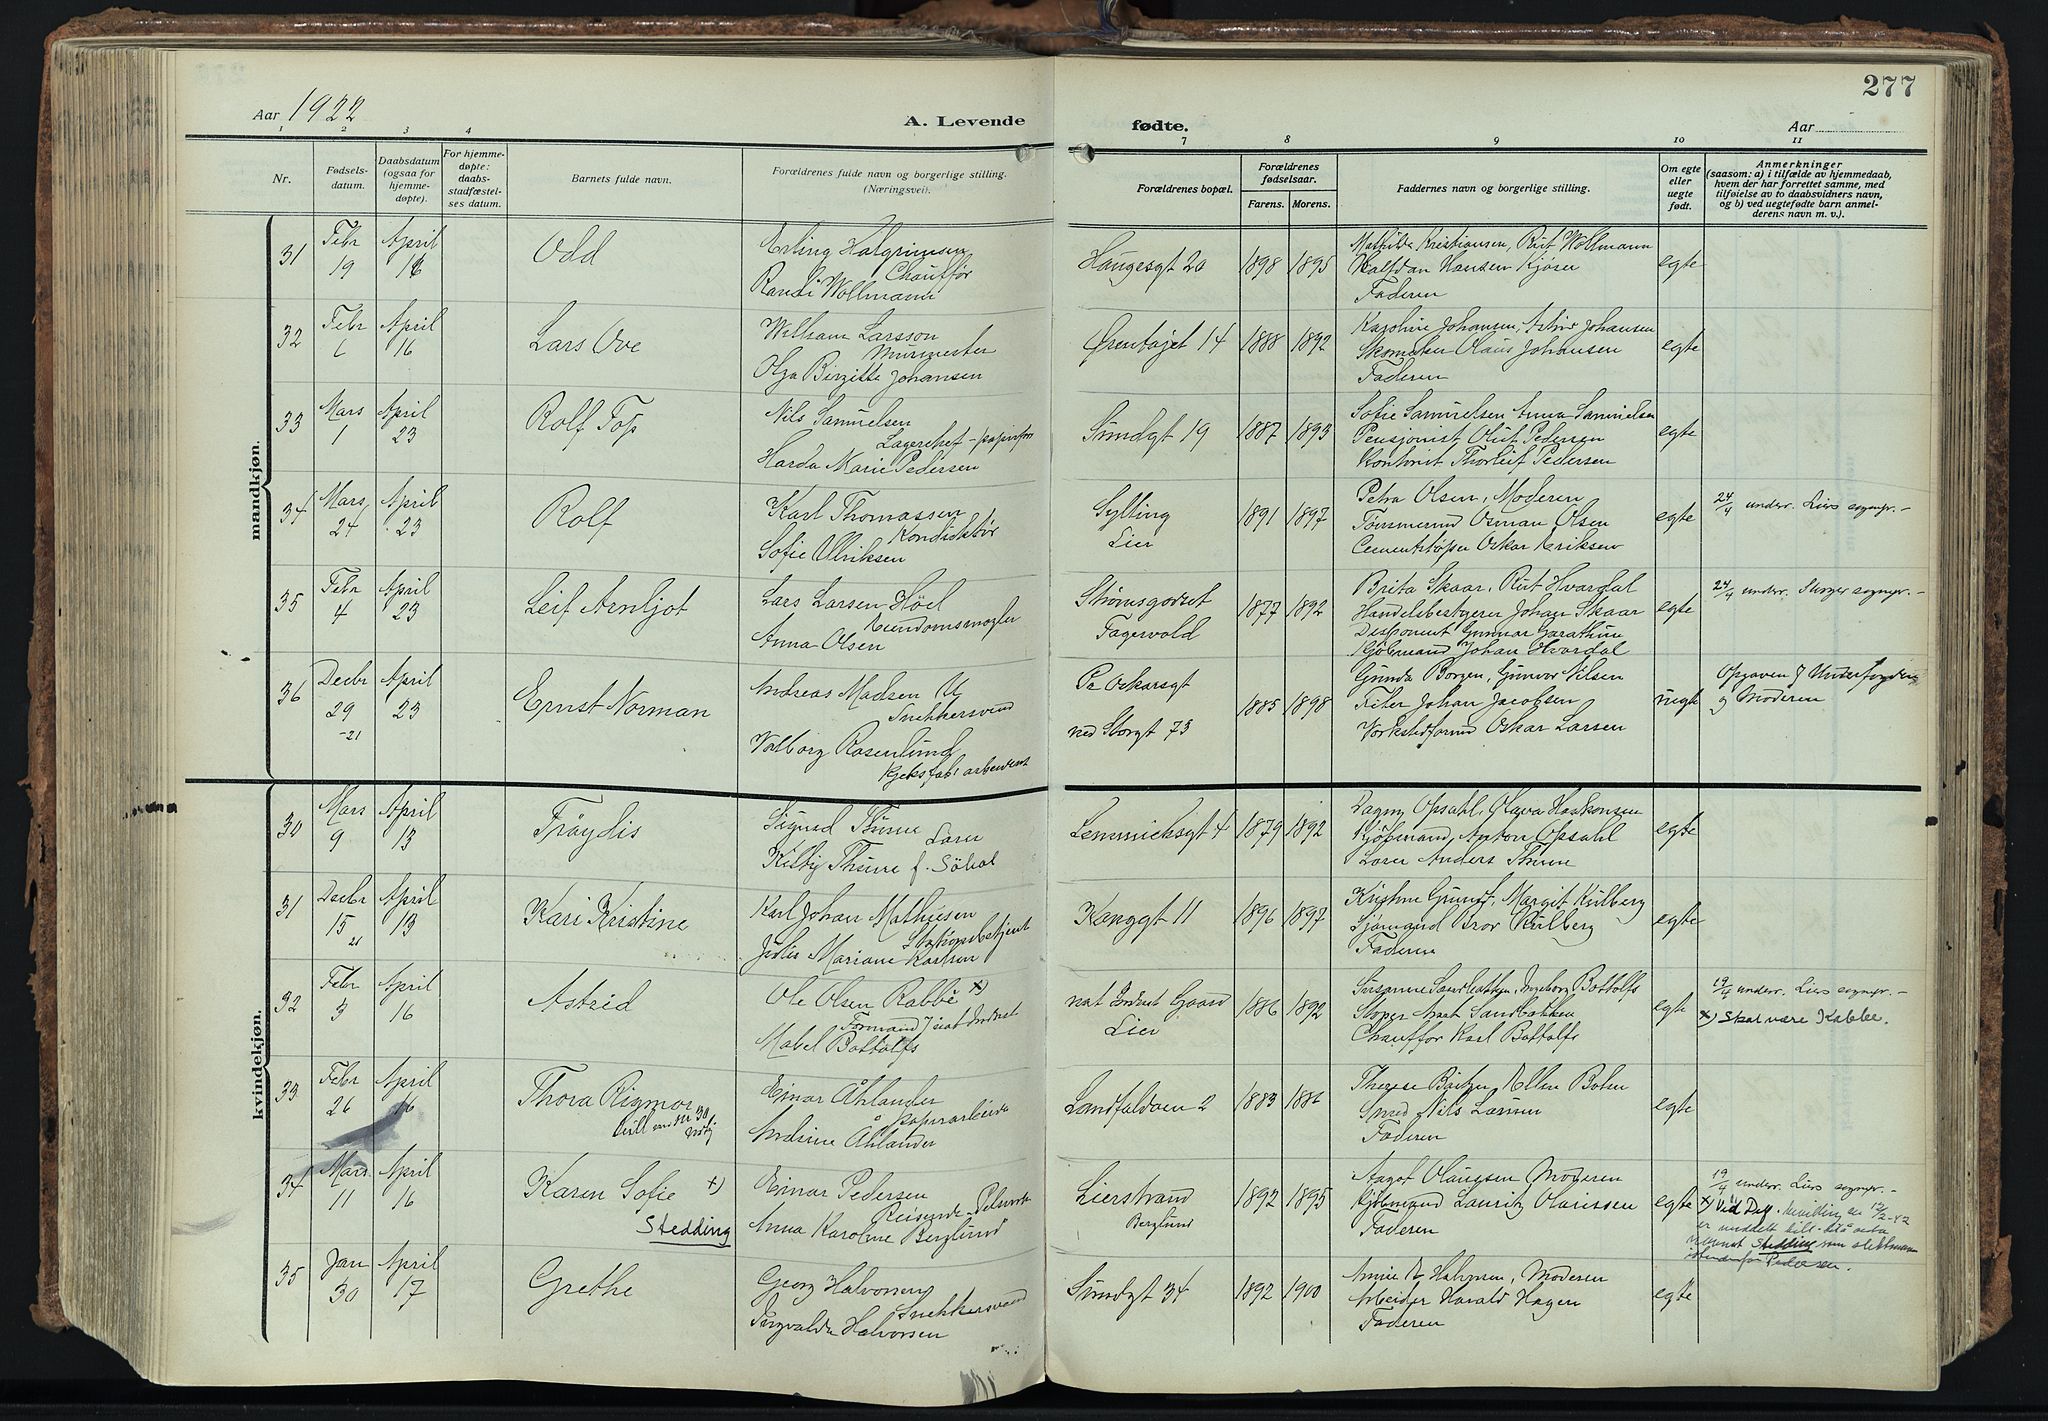 277
Aar 1922
A. Levende
fødte.
Aar
1 2 3 4 7 8 9 10 11
Nr.
Fødsels-
datum.
Daabsdatum
(ogsaa for
hjemme-
døpte).
For hjemme-
døpte:
daabs-
stadfæstel-
ses datum.
Barnets fulde navn.
Forældrenes fulde navn og borgerlige stilling.
(Næringsvei).
Forældrenes bopæl.
Forældrenes
fødselsaar.
Farens. Morens.
Faddernes navn og borgerlige stilling.
Om egte
eller
uegte
født.
Anmerkninger
(saasom: a) i tilfælde av hjemmedaab,
hvem der har forrettet samme, med
tilføielse av to daabsvidners navn,
og b) ved uegtefødte barn anmel-
derens navn m. v.).
mandkjøn.
31 Febr 19 April 16
Odd
Erling Halgrimsen
Chauffør
Randi Wollmann
Haugesgt 20 1898 1895
Mathilde Kristiansen, Rut Wollmann
Halfdan Hansen Kjøsen
Faderen
egte
32 Febr 6 April 16
Lars Ove
William Larsson
Murmester
Olga Birgitte Johansen
Ørentøjet 14 1888 1892
Karoline Johansen, Johansen
Olaus Johansen
Faderen
egte
33 Mars 1 April 23
Rolf Top
Nils Samuelsen
Harda Marie Pedersen
Sundgt 19 1887 1893
Sofie Samuelsen Anna Samuelsen
Pensjonist Olut Pedersen
Kontorist Thorleif Pedersen
egte
34 Mars 24 April 23
Rolf
Karl Thomassen
Konduktør
Sofie Ulriksen
Sylling
Lier
1891 1897
Petra Olsen, Moderen
Osman Olsen
Cementstøper Oskar Eriksen
egte
24/4 underr. Liers sognepr. –
35 Febr 4 April 23
Leif Arnljot
Lars Larsen Höel
Eiendomsmægler
Anna Olsen
Strømsgodset
Fagervold
1877 1892
Brita Skaar, Rut Hvardal
Handelsbestyrer Johan Skaar
Disponent Gunnar Garathun
Kjøbmand Johan Hvardal
egte
24/4 underr. sognepr. –
36 Decbr 29 -21 April 23
Ernst Norman
Andreas Madsen Uy
Snekkersvend
Valborg Rosenlund
Kjeksfab. arbeiderst
Pr Oskarsgt
ned Storgt 73
1885 1898
Gunda Borgen, Gunvor Nilsen
Filer Johan Jacobsen
Verkstedformd Oskar Larsen
uegte
Opgaven f
og Moderen
kvindekjøn.
30 Mars 9 April 13
Frøydis
Sigurd Thune
Lærer
Kitty Thune f. Söhol
Lemmichsgt 4 1879 1892
Dagny Opsahl, Olava Haakonsen
Kjøbmand Anton Opsahl
Lærer Anders Thune
egte
31 Decbr 15 21 April 13
Kari Kristine
Karl Johan Mathiesen
Stasjonsbetjent
Mariane Karlsen
Konggt 11 1896 1897
Kristine Grundt, Margit Kulberg
Sjømand Bror Kulberg
Faderen
egte
32 Febr 3 April 16
Astrid
Ole Olsen Rabbe x)
Formand
Mabel Bottolfs
Gaard
Lier
1886 1892
Susanne Sandbakken, Ingeborg Bottolfs
Sandbakken
Chauffør Karl Bottolfs
egte
19/4 underr. Liers sognepr. –
x) Skal være Kabbe.
33 Febr 26 April 16
Thora Rigmor
Einar Åhlander
Papirarbeider
Andrine Åhlander
Landfaldøen 2 1883 1886
Therese Ellen Bolen
Smed Nils Larsen
Faderen
egte
34 Mars 11 April 16
Karen Sofie x)
Stedding
Einar Pedersen
Reisende
Anna Karoline Berglund
Lierstrand
Berglund
1892 1895
Aagot Olaussen Moderen
Kjøbmand Lauritz Olaussen
Faderen
egte
19/4 underr. Liers sognepr. –
x) Ved Dep. bevilling av 12/2-42
er meddelt
Stedding som slektsnavn
istedenfor Pedersen.
35 Jan 30 April 17
Grethe
Georg Halvorsen
Snekkersvend
Ingvalda Halvorsen
Sundgt 34 1892 1900
Halvorsen, Moderen
Arbeider Harald Hagen
Faderen
egte